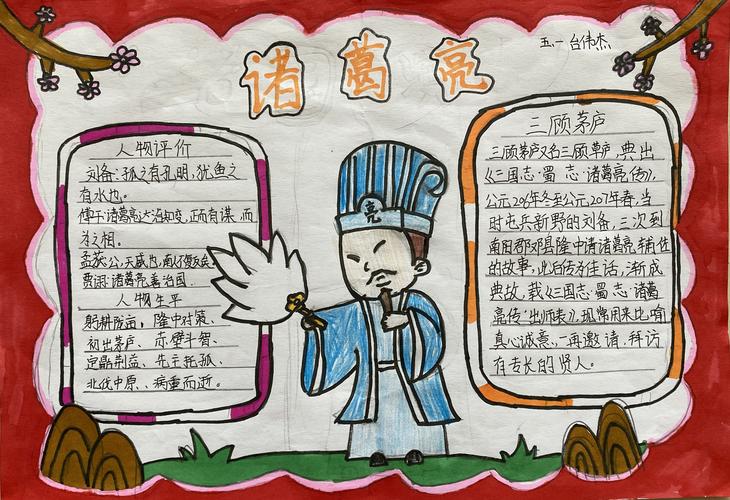 诸葛亮
五.一 台伟杰
人物评价
刘备:孤之有孔明,犹鱼之
有水也。
傅干:诸葛亮达治知变,正而有谋,而
为之相。
孟获:公,天威也,南人不复反矣
贾诩:诸葛亮善治国
人物生平
躬耕陇亩、隆中对策、
初出茅庐、赤壁斗智、
定鼎荆益、先主托孤、
北伐中原、病重而逝。
亮
三顾茅庐
三顾茅庐又名三顾草庐,典出
《三国志·蜀志·诸葛亮传》,
公元206年冬至公元207年春,当
时屯兵新野的刘备,三次到
南阳郡邓县隆中请诸葛亮辅佐
的故事,此后传为佳话,渐成
典故,载《三国志·蜀志·诸葛
亮传·出师表》,现常用来比喻
真心诚意,一再邀请,拜访
有专长的贤人。